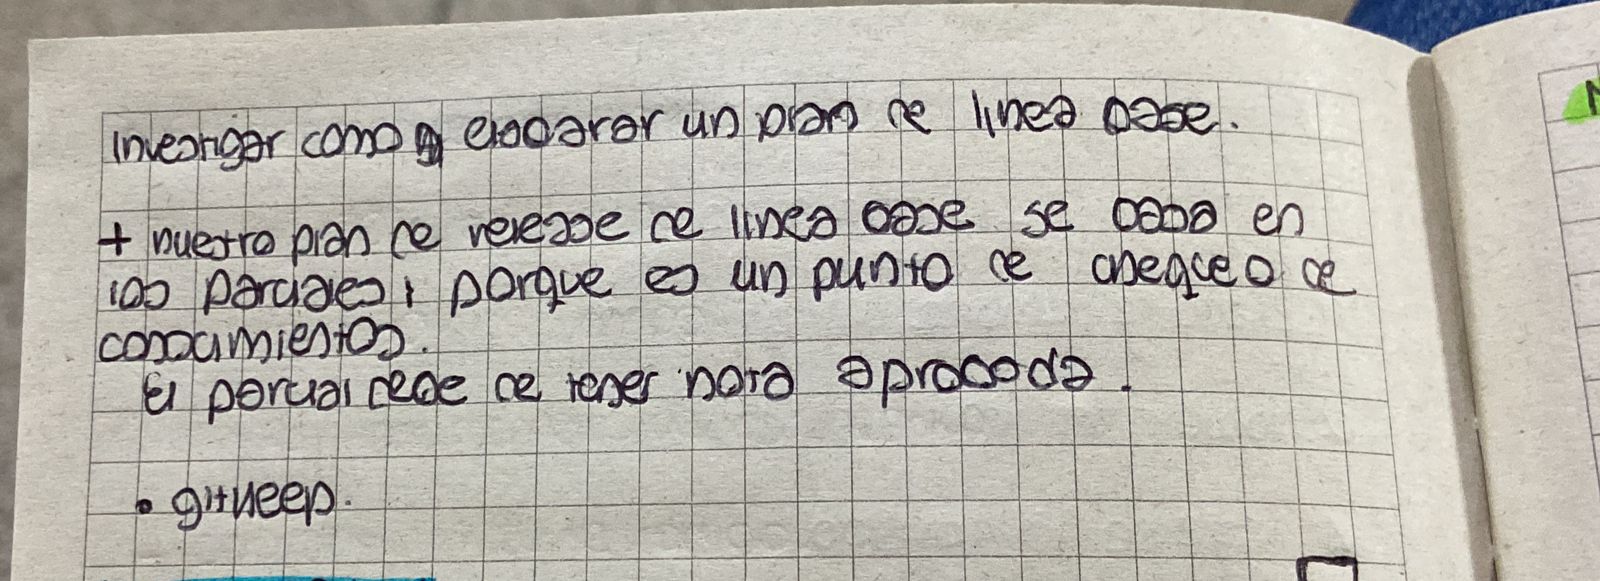 Investigar como elaborar un plan de linea base.
+ nuestro plan de release de linea base se basa en
los parciales, porque es un punto de chequeo de
conocimientos.
El parcial debe de tener nota aprobada.
• gitkeep.